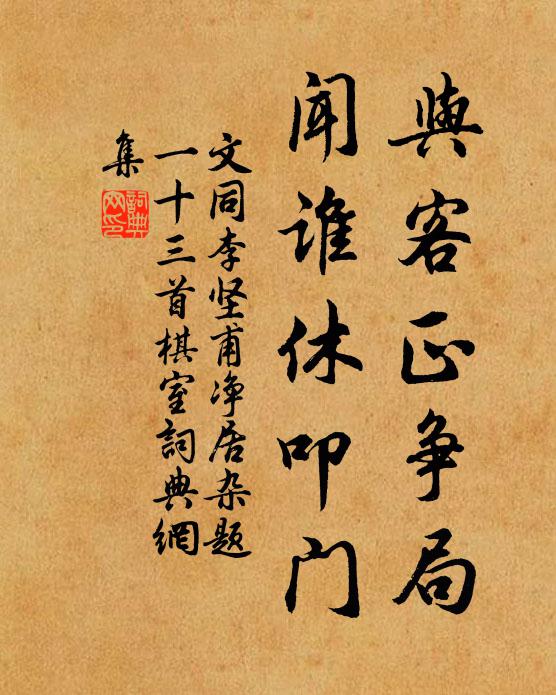 與客正争局
闻谁休叩门
文同李坚甫净居杂题
一十三首棋室詞典網
集
詞典
网印